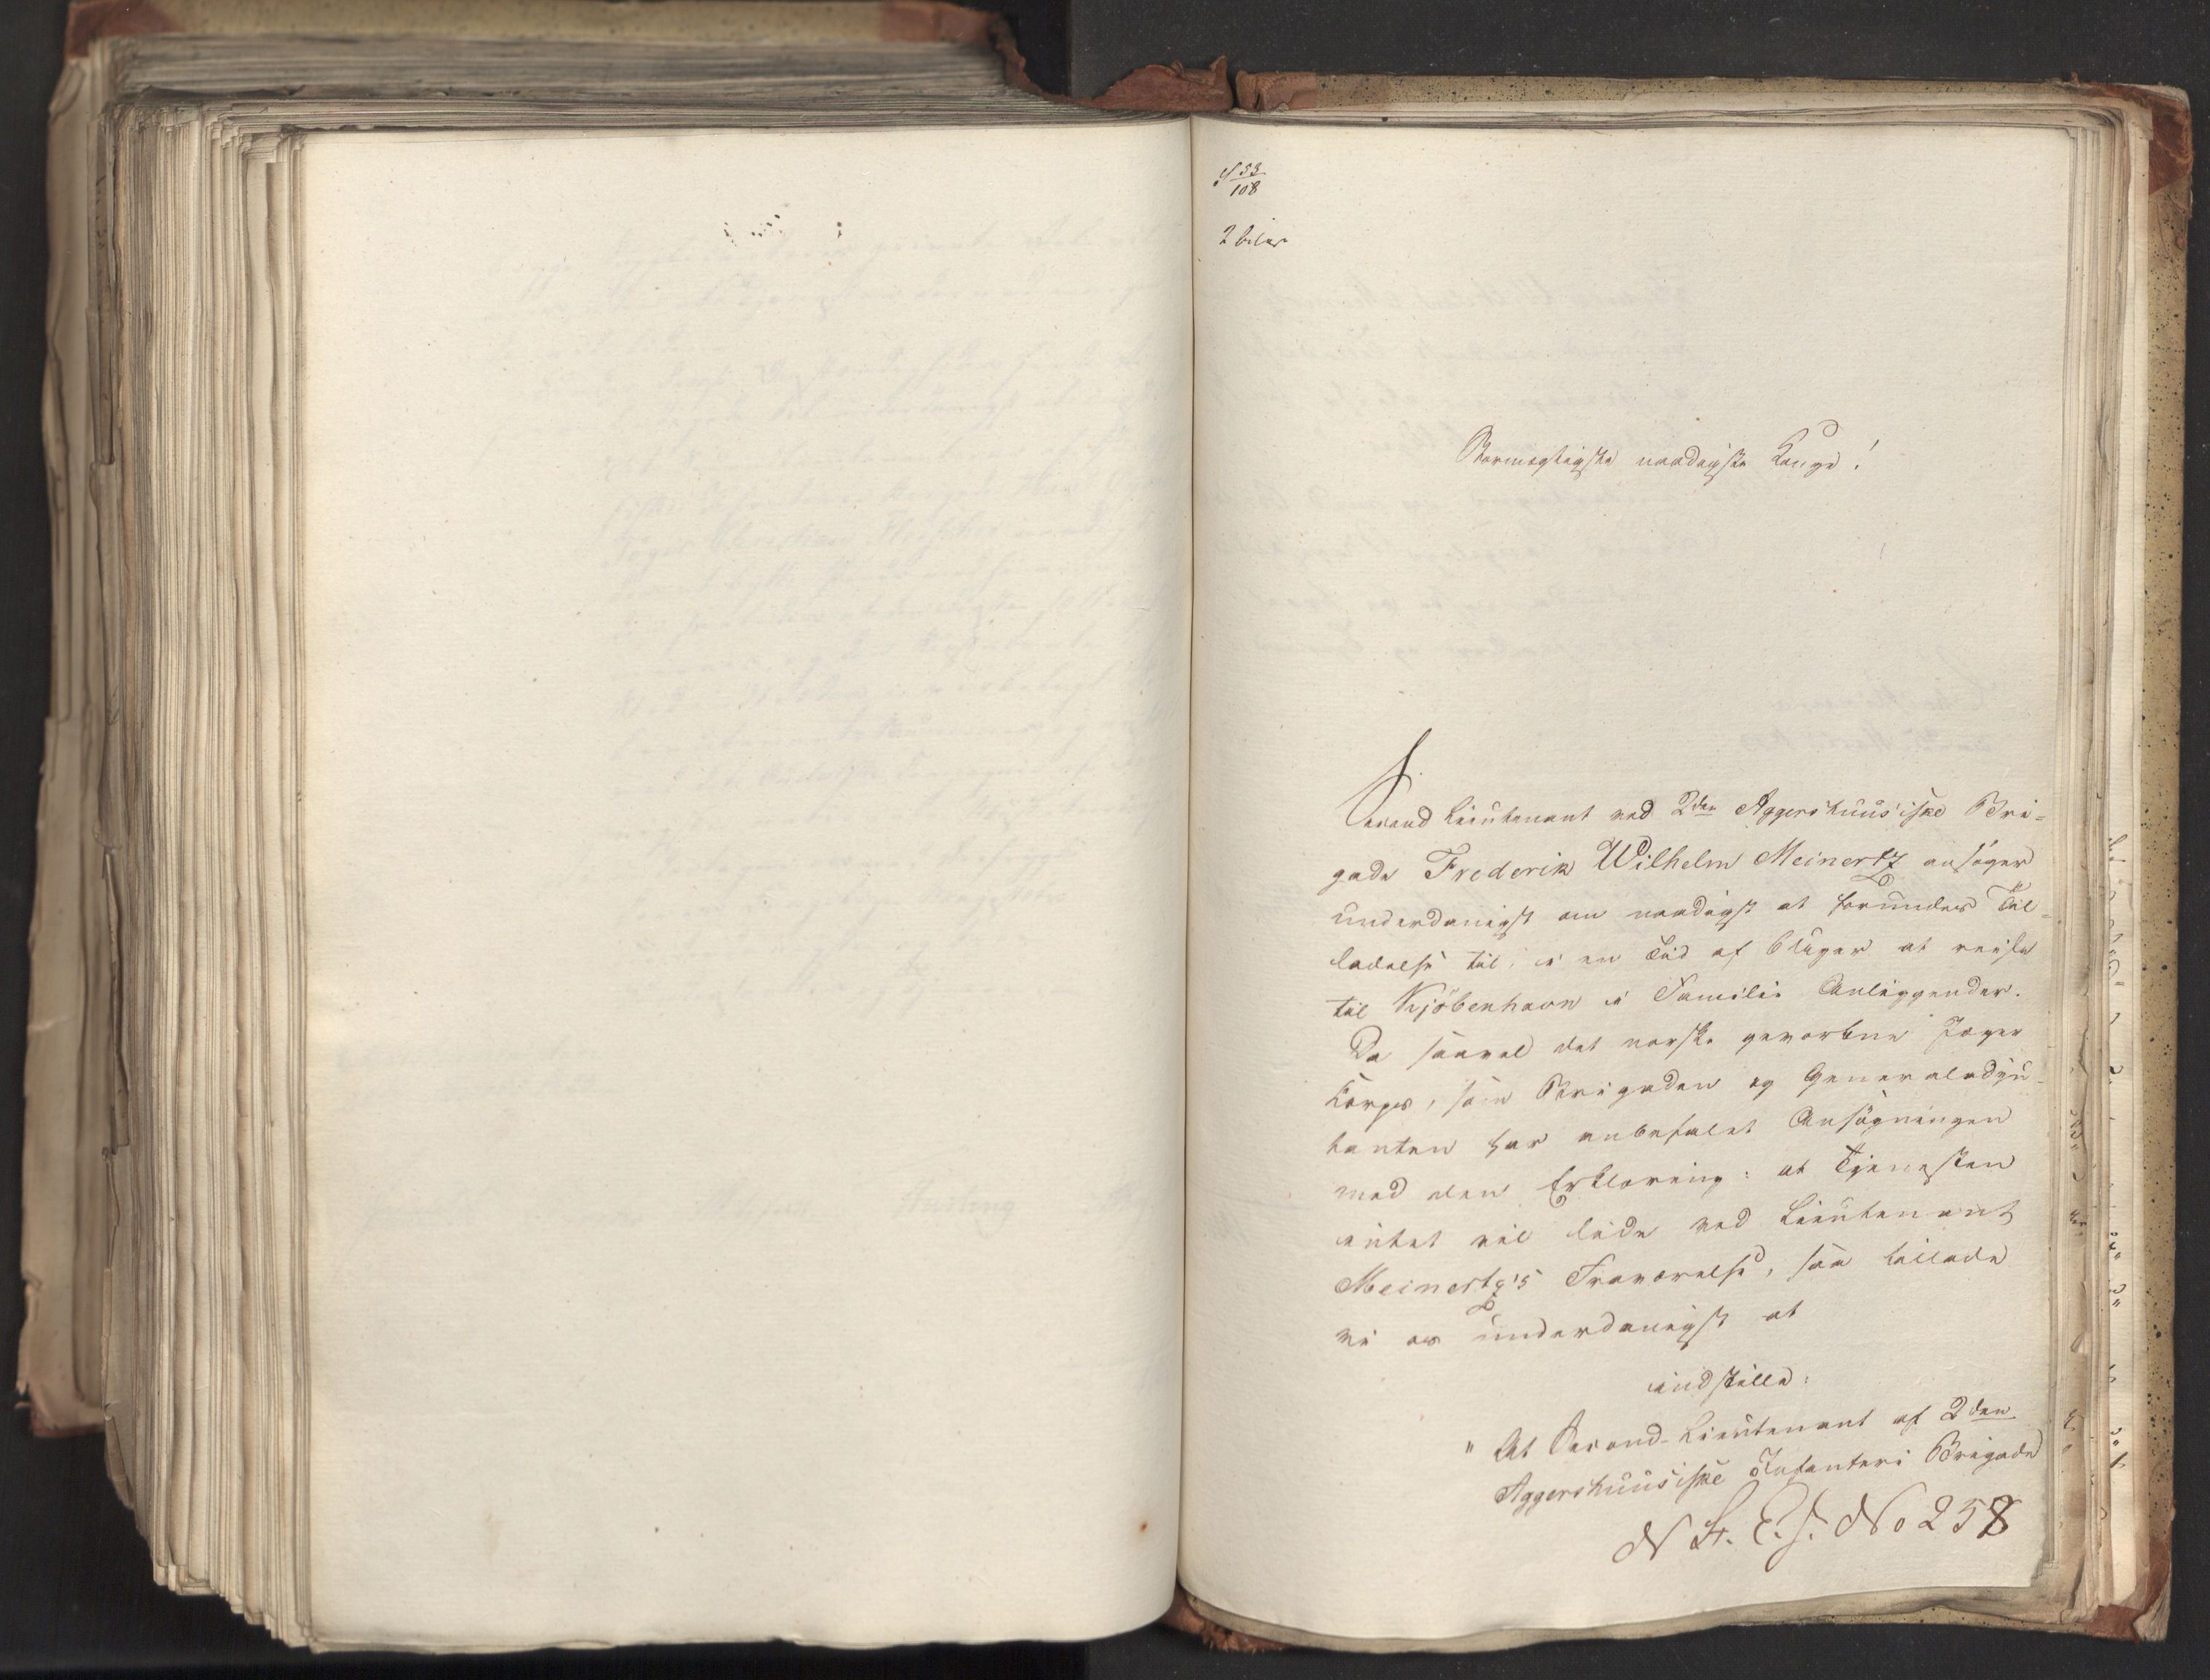 53
108
2 bilag
Stormægtigste naadigste Konge!
Second Lieutenant ved 2den Aggershuus'iske Bri=
gade Frederik Wilhelm Meinertz ansöger
underdanigst om naadigst at forundes Til=
ladelse til, i en Tid af 6 Uger at reise
til Kjöbenhavn i Familie Anliggender.
Da saavel det norske gevorbne Jæger
Corps, som Brigaden og Generaladju=
tanten har anbefalet Ansögningen
med den Erklæring: at Tjenesten
intet vil lide ved Lieutenant
Meinertz's Fraværelse, saa tillade
vi os underdanigst at
indstille:
" At Second-Lieutenant af 2den
Aggershuus'iske Infanteri Brigade
N H. E. J. No 258